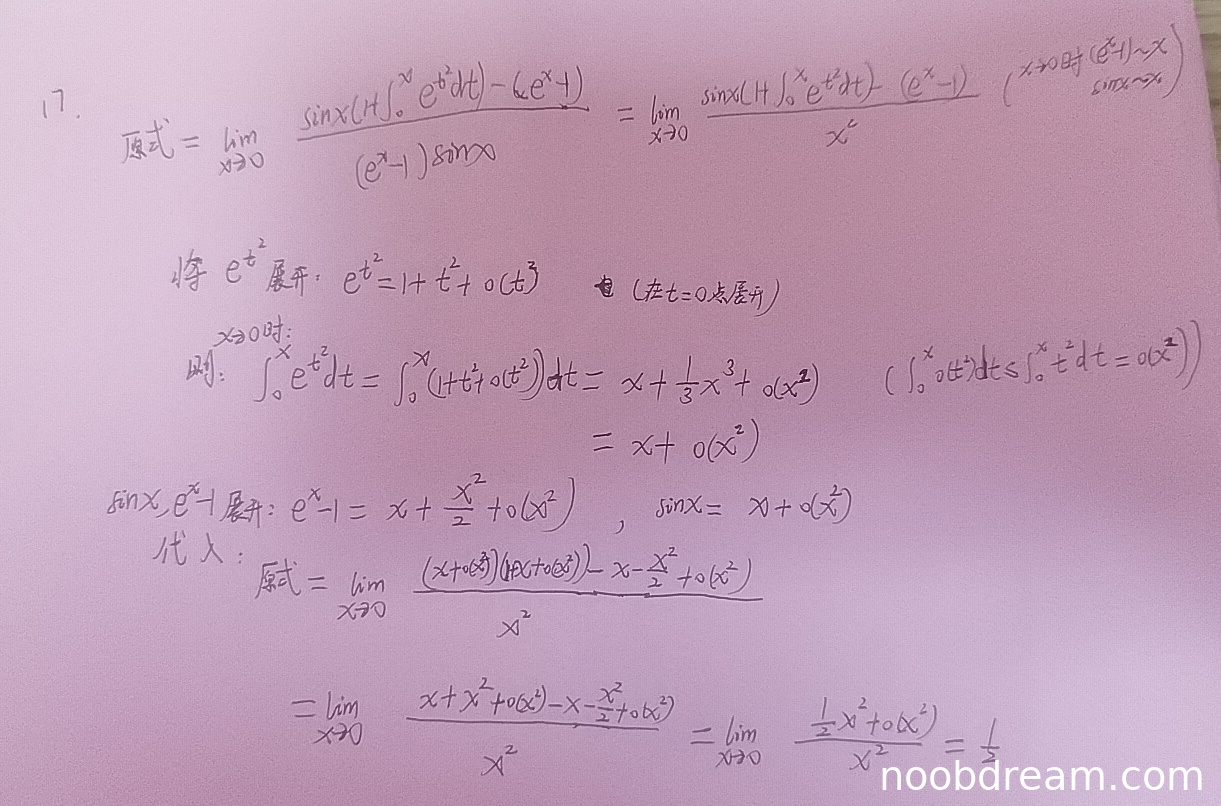 17.
原式 = lim_{x→0} (sinx(1+∫₀ˣ e^{t²}dt) - (e^x-1)) / ((e^x-1)sinx) = lim_{x→0} (sinx(1+∫₀ˣ e^{t²}dt) - (e^x-1)) / x² (x→0时 (e^x-1)~x sinx~x)
将 e^{t²} 展开: e^{t²} = 1+t²+o(t²) (在t=0点展开)
x→0时:
则: ∫₀ˣ e^{t²}dt = ∫₀ˣ (1+t²+o(t²))dt = x + 1/3 x³ + o(x²) (∫₀ˣ o(t²)dt ≤ ∫₀ˣ t²dt = o(x²))
= x + o(x²)
sinx, e^x-1 展开: e^x-1 = x + x²/2 + o(x²) , sinx = x + o(x²)
代入:
原式 = lim_{x→0} ((x+o(x²))(1+x+o(x²)) - x - x²/2 + o(x²)) / x²
= lim_{x→0} (x+x²+o(x²) - x - x²/2 + o(x²)) / x² = lim_{x→0} (1/2 x² + o(x²)) / x² = 1/2
noobdream.com